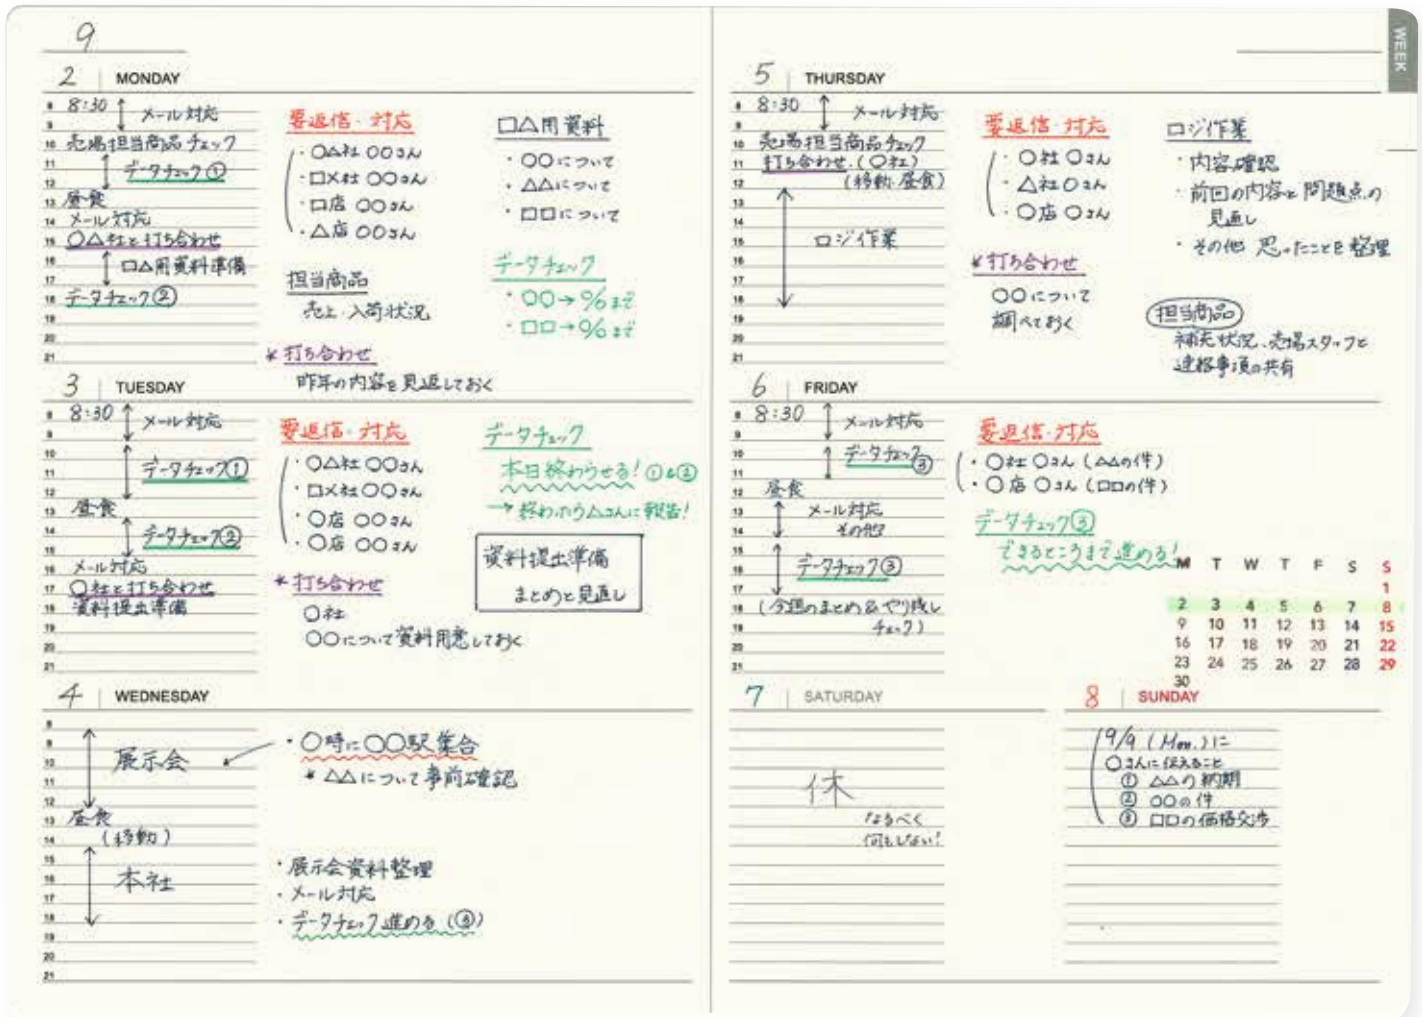 9
WEEK
2 MONDAY
8 8:30 メール対応
9
10 売場担当商品チェック
11 データチェック①
12
13 昼食
14 メール対応
15 ○△社と打ち合わせ
16 □△用資料準備
17
18 データチェック②
19
20
21
要返信・対応
・○△社 ○○さん
・□×社 ○○さん
・□店 ○○さん
・△店 ○○さん
担当商品
売上・入荷状況
*打ち合わせ
昨年の内容を見返しておく
□△用資料
・○○について
・△△について
・□□について
データチェック
・○○→%まで
・□□→%まで
3 TUESDAY
8 8:30 メール対応
9
10
11 データチェック①
12
13 昼食
14 データチェック②
15
16 メール対応
17 ○社と打ち合わせ
18 資料提出準備
19
20
21
要返信・対応
・○△社 ○○さん
・□×社 ○○さん
・○店 ○○さん
・○店 ○○さん
*打ち合わせ
○社
○○について資料用意しておく
データチェック
本日終わらせる!①&②
→終わったら△さんに報告!
資料提出準備
まとめと見直し
4 WEDNESDAY
8
9
10 展示会
11
12
13 昼食
14 (移動)
15
16 本社
17
18
19
20
21
・○時に○○駅集合
*△△について事前確認
・展示会資料整理
・メール対応
・データチェック進める(③)
5 THURSDAY
8 8:30 メール対応
9
10 売場担当商品チェック
11 打ち合わせ(○社)
12 (移動・昼食)
13
14
15 ロジ作業
16
17
18
19
20
21
要返信・対応
・○社 ○さん
・△社 ○さん
・○店 ○さん
*打ち合わせ
○○について
調べておく
ロジ作業
・内容確認
・前回の内容と問題点の
見直し
・その他 思ったことを整理
担当商品
補充状況、売場スタッフと
連絡事項の共有
6 FRIDAY
8 8:30 メール対応
9
10 データチェック③
11
12 昼食
13 メール対応
14 その他
15
16 データチェック③
17
18 (今週のまとめ&やり残し
19 チェック)
20
21
要返信・対応
・○社 ○さん(△△の件)
・○店 ○さん(□□の件)
データチェック③
できるところまで進める!
M T W T F S S
1
2 3 4 5 6 7 8
9 10 11 12 13 14 15
16 17 18 19 20 21 22
23 24 25 26 27 28 29
30
7 SATURDAY
休
なるべく
何もしない!
8 SUNDAY
9/9 (Mon.)に
○さんに伝えること
① △△の納期
② ○○の件
③ □□の価格交渉